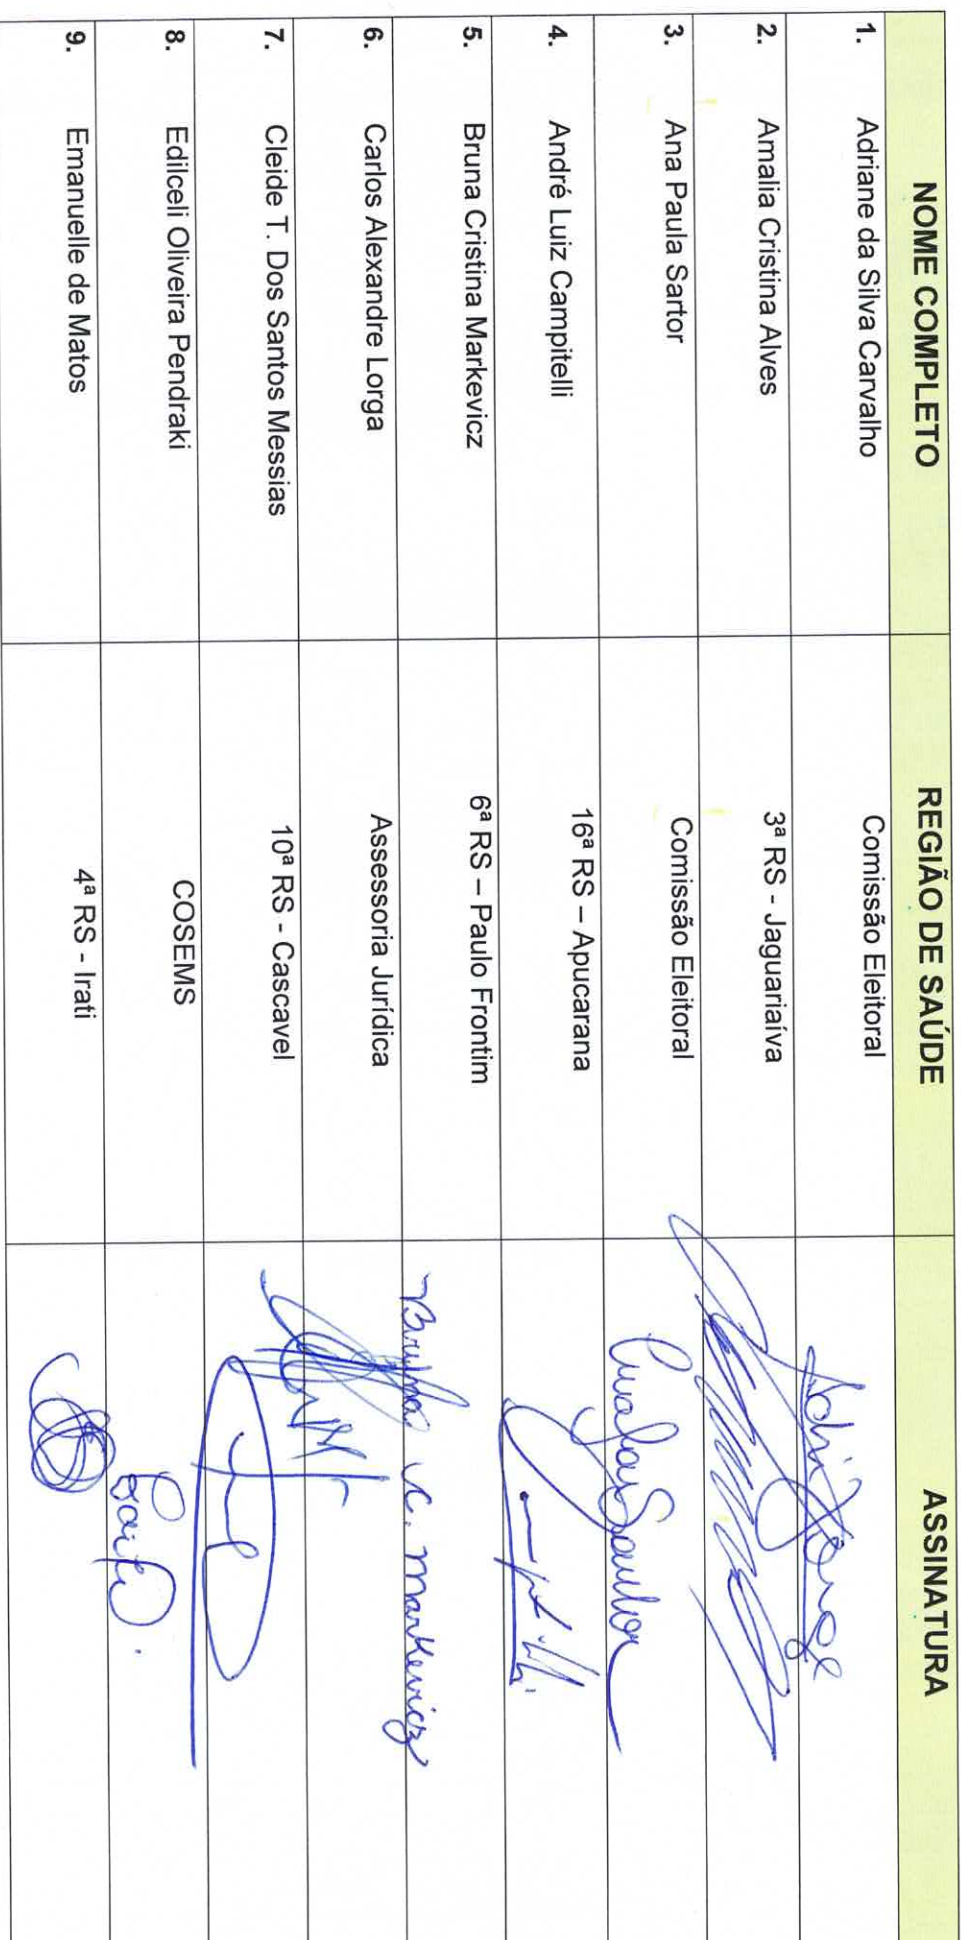 NOME COMPLETO REGIÃO DE SAÚDE ASSINATURA
1. Adriane da Silva Carvalho Comissão Eleitoral
2. Amalia Cristina Alves 3ª RS - Jaguariaíva
3. Ana Paula Sartor Comissão Eleitoral
4. André Luiz Campitelli 16ª RS – Apucarana
5. Bruna Cristina Markevicz 6ª RS – Paulo Frontim Bruna C. Markevicz
6. Carlos Alexandre Lorga Assessoria Jurídica
7. Cleide T. Dos Santos Messias 10ª RS - Cascavel
8. Edilceli Oliveira Pendraki COSEMS
9. Emanuelle de Matos 4ª RS - Irati